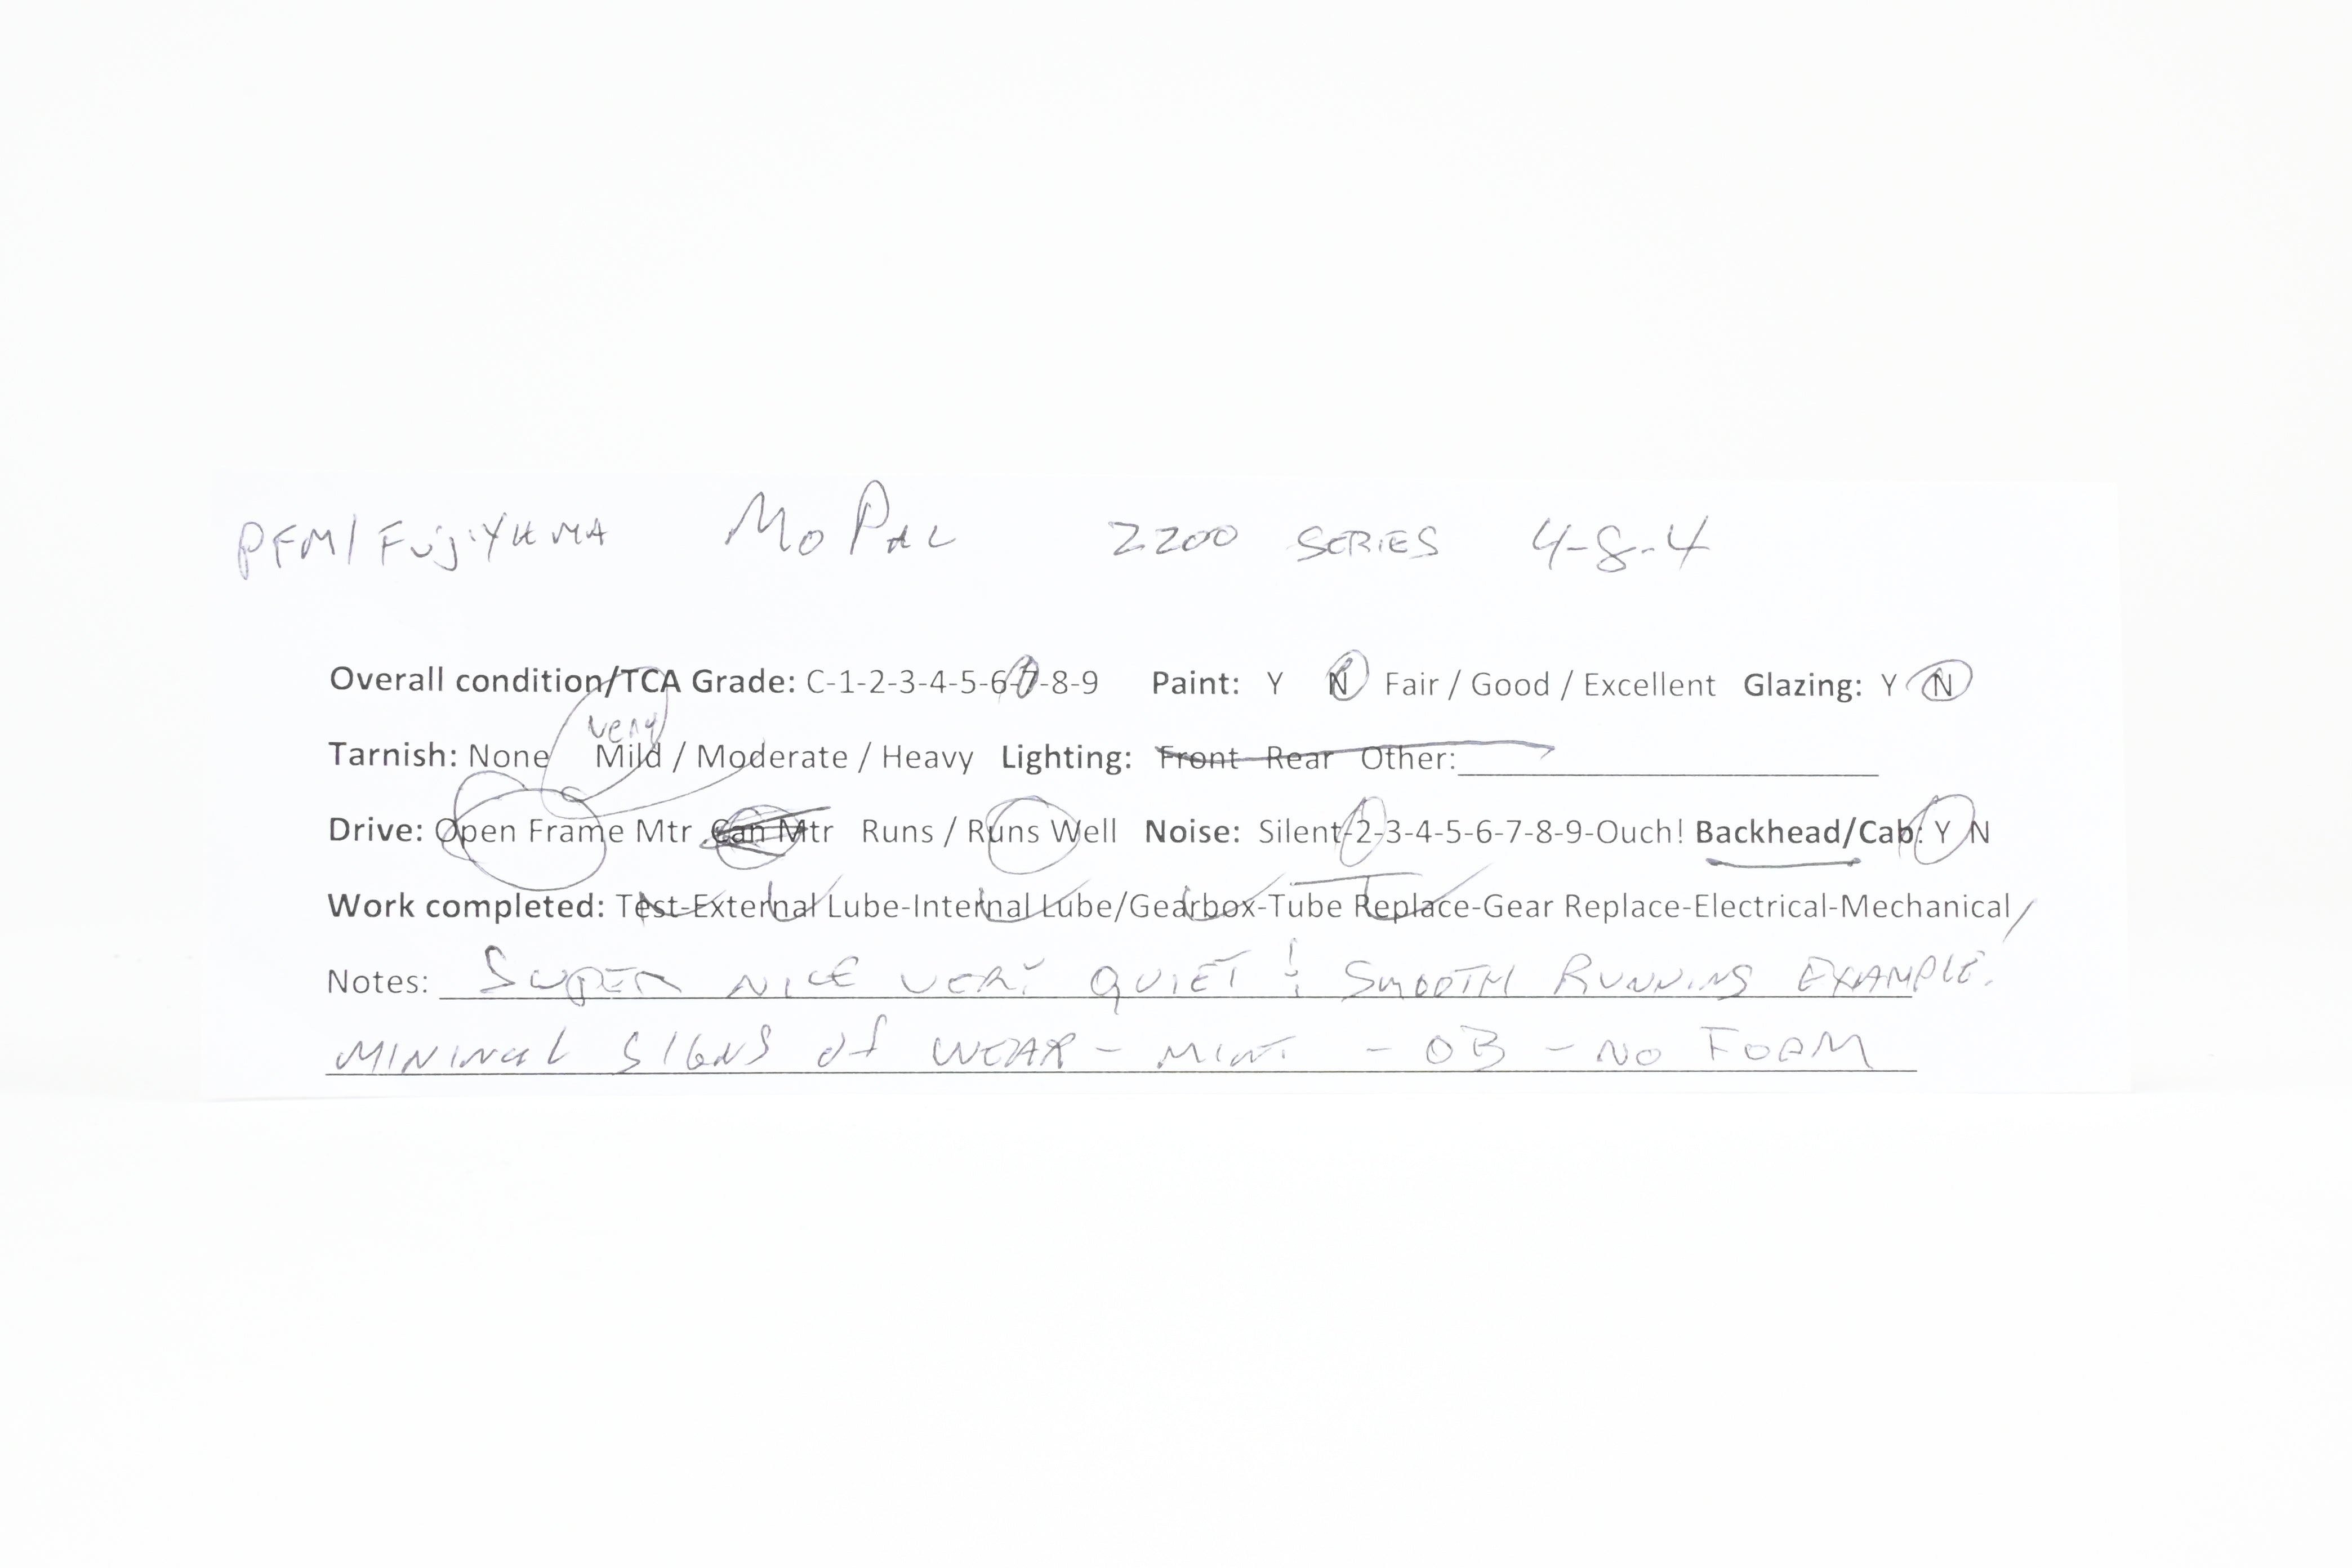 PFM/FUJIYAMA MoPac 2200 SERIES 4-8-4
Overall condition/TCA Grade: C-1-2-3-4-5-6-7-8-9 Paint: Y N Fair / Good / Excellent Glazing: Y N
very
Tarnish: None Mild / Moderate / Heavy Lighting: Front Rear Other:
Drive: Open Frame Mtr Can Mtr Runs / Runs Well Noise: Silent-2-3-4-5-6-7-8-9-Ouch! Backhead/Cab: Y N
Work completed: Test-External Lube-Internal Lube/Gearbox-Tube Replace-Gear Replace-Electrical-Mechanical/
Notes: SUPER NICE VERY QUIET & SMOOTH RUNNING EXAMPLE.
MINIMAL SIGNS OF WEAR - MINT - OB - NO FOAM